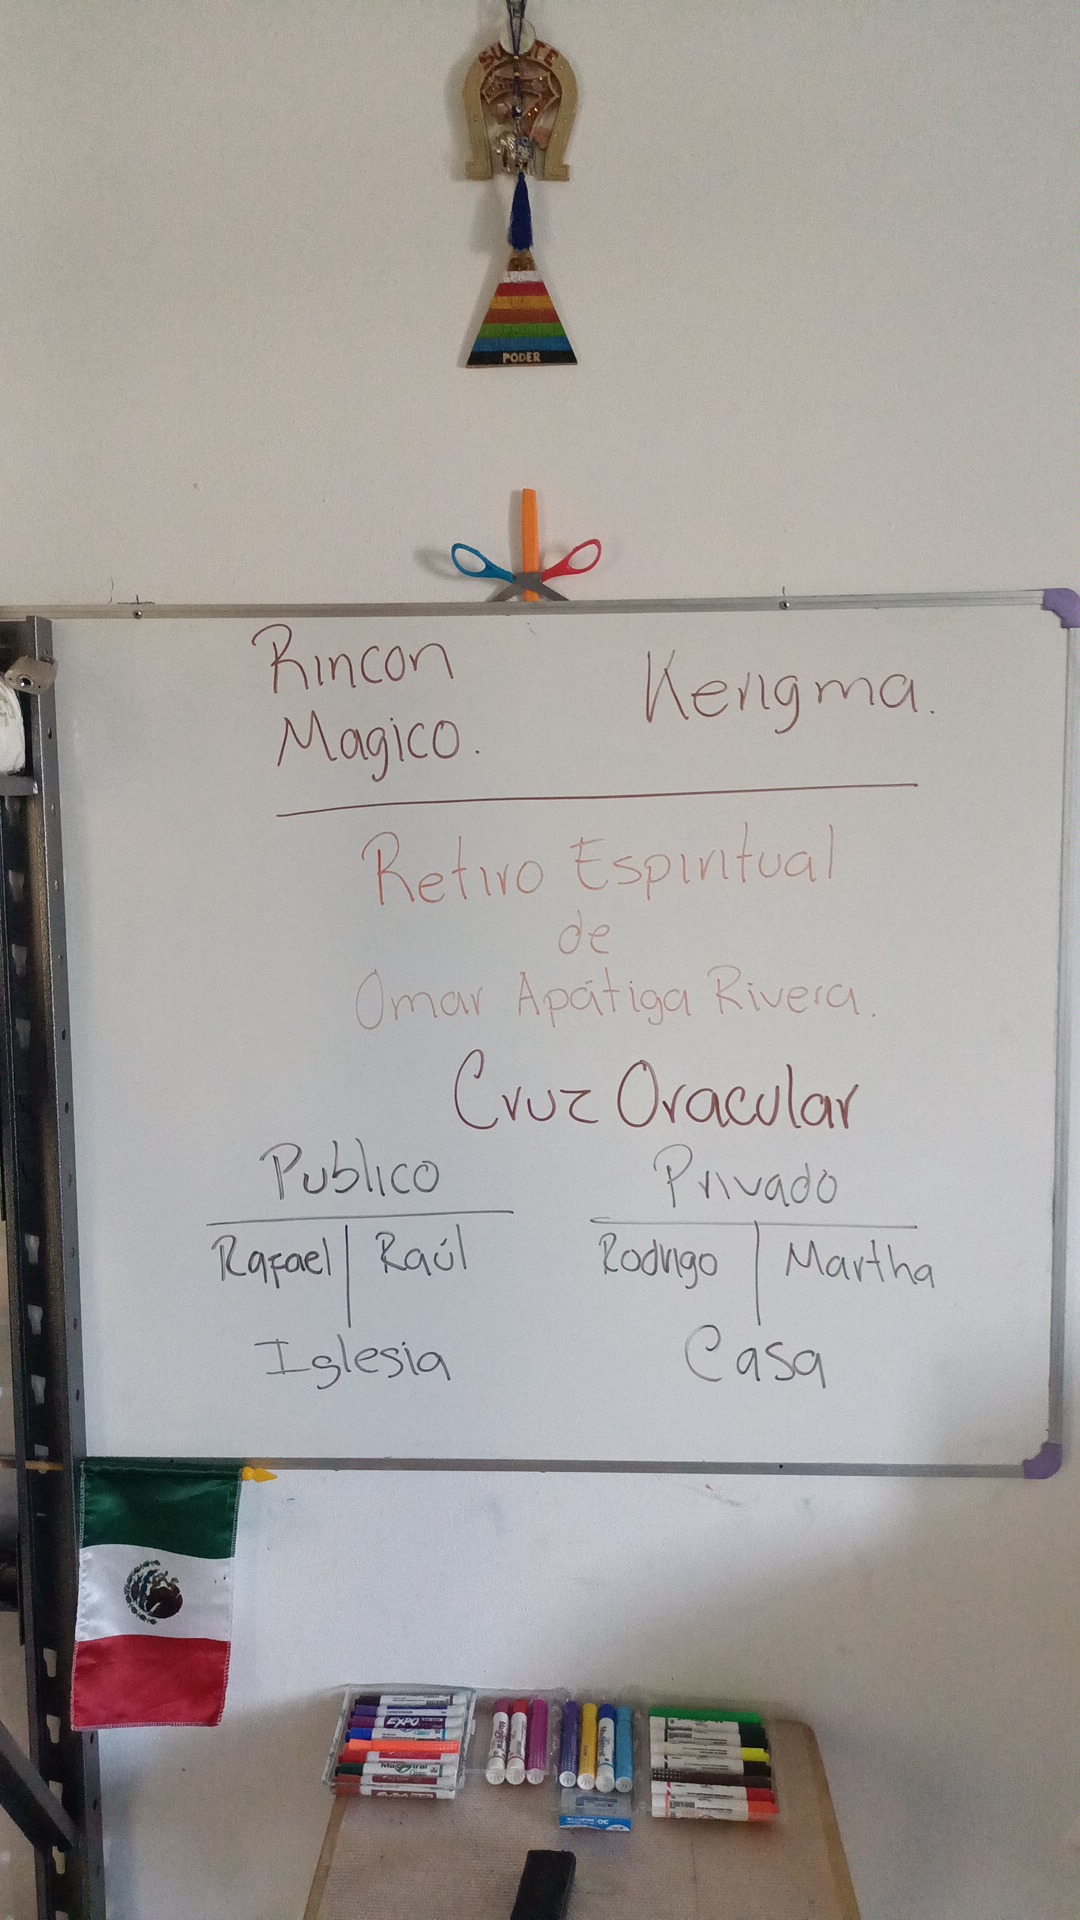 SUERTE
PODER
Rincon
Magico.
Kerigma.
Retiro Espiritual
de
Omar Apátiga Rivera.
Cruz Oracular
Publico
Privado
Rafael | Raúl
Rodrigo | Martha
Iglesia
Casa
EXPO
Magistral